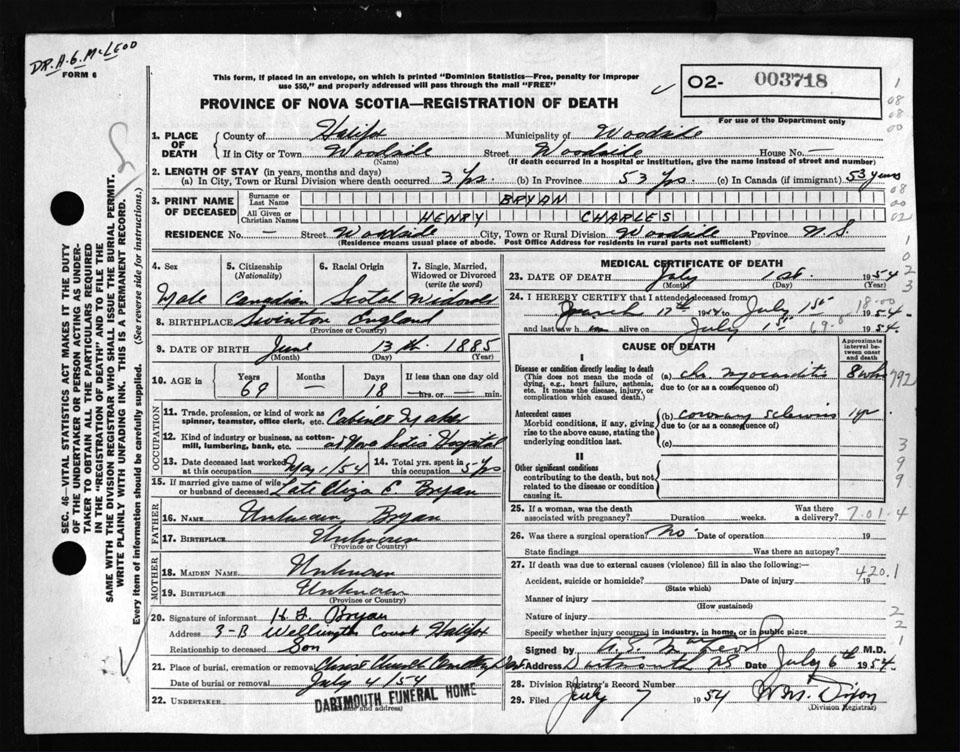 DR. A. G. McLEOD
FORM 6
This form, if placed in an envelope, on which is printed "Dominion Statistics—Free, penalty for improper
use $50," and properly addressed will pass through the mail "FREE"
PROVINCE OF NOVA SCOTIA—REGISTRATION OF DEATH
O2- 003718
For use of the Department only
SEC. 46—VITAL STATISTICS ACT MAKES IT THE DUTY
OF THE UNDERTAKER OR PERSON ACTING AS UNDER-
TAKER TO OBTAIN ALL THE PARTICULARS REQUIRED
IN THE "REGISTRATION OF DEATH" AND TO FILE THE
SAME WITH THE DIVISION REGISTRAR WHO SHALL ISSUE THE BURIAL PERMIT.
WRITE PLAINLY WITH UNFADING INK. THIS IS A PERMANENT RECORD.
Every item of information should be carefully supplied. (See reverse side for instructions.)
1. PLACE OF DEATH County of Halifx Municipality of Woodside
If in City or Town Woodside Street Woodside House No. —
(Name) (If death occurred in a hospital or institution, give the name instead of street and number)
2. LENGTH OF STAY (in years, months and days)
(a) In City, Town or Rural Division where death occurred 3 yrs. (b) In Province 53 yrs. (c) In Canada (if immigrant) 53 years
3. PRINT NAME OF DECEASED Surname or Last Name BRYAN
All Given or Christian Names HENRY CHARLES
RESIDENCE No. — Street Woodside City, Town or Rural Division Woodside Province N.S.
(Residence means usual place of abode. Post Office Address for residents in rural parts not sufficient)
4. Sex 5. Citizenship (Nationality) 6. Racial Origin 7. Single, Married, Widowed or Divorced (write the word)
Male Canadian Scotch Widower
8. BIRTHPLACE Swinton England
(Province or Country)
9. DATE OF BIRTH June 13th 1885
(Month) (Day) (Year)
10. AGE in Years Months Days If less than one day old
69 — 18 —hrs. or —min.
OCCUPATION
11. Trade, profession, or kind of work as spinner, teamster, office clerk, etc. Cabinet Maker
12. Kind of industry or business, as cotton-mill, lumbering, bank, etc. at Nova Scotia Hospital
13. Date deceased last worked at this occupation May 1/54 14. Total yrs. spent in this occupation 5 yrs
15. If married give name of wife or husband of deceased Late Eliza C. Bryan
FATHER
16. NAME Unknown Bryan
17. BIRTHPLACE Unknown
(Province or Country)
MOTHER
18. MAIDEN NAME Unknown
19. BIRTHPLACE Unknown
(Province or Country)
20. Signature of informant H. F. Bryan
Address 3-B Wellington Court Halifax
Relationship to deceased Son
21. Place of burial, cremation or removal Christ Church Cemetery Dart
Date of burial or removal July 4/54
22. UNDERTAKER DARTMOUTH FUNERAL HOME
(Name and address)
MEDICAL CERTIFICATE OF DEATH
23. DATE OF DEATH July 1st. 1954
(Month) (Day) (Year)
24. I HEREBY CERTIFY that I attended deceased from
March 17th 1954 to July 1st 1954
and last saw him alive on July 1st 1954
18-00
69-0
CAUSE OF DEATH
Approximate interval between onset and death
I
Disease or condition directly leading to death
(This does not mean the mode of dying, e.g., heart failure, asthenia, etc. It means the disease, injury, or complication which caused death.)
(a) chr. myocarditis 8 wks
due to (or as a consequence of)
Antecedent causes
Morbid conditions, if any, giving rise to the above cause, stating the underlying condition last.
(b) coronary sclerosis 1 yr
due to (or as a consequence of)
(c)
II
Other significant conditions
contributing to the death, but not related to the disease or condition causing it.
25. If a woman, was the death associated with pregnancy? Duration weeks. Was there a delivery?
7-01-4
26. Was there a surgical operation? No Date of operation 19
State findings Was there an autopsy?
27. If death was due to external causes (violence) fill in also the following:
420.1
Accident, suicide or homicide? Date of injury 19
(State which)
Manner of injury
(How sustained)
Nature of injury
Specify whether injury occurred in industry, in home, or in public place
Signed by A. G. MacLeod M.D.
Address Dartmouth NS Date July 6th 1954
28. Division Registrar's Record Number
29. Filed July 7 1954 Wm. Dixon
(Division Registrar)
1
08
08
00
08
00
02
1
0
2
3
792
3
9
9
2
2
1